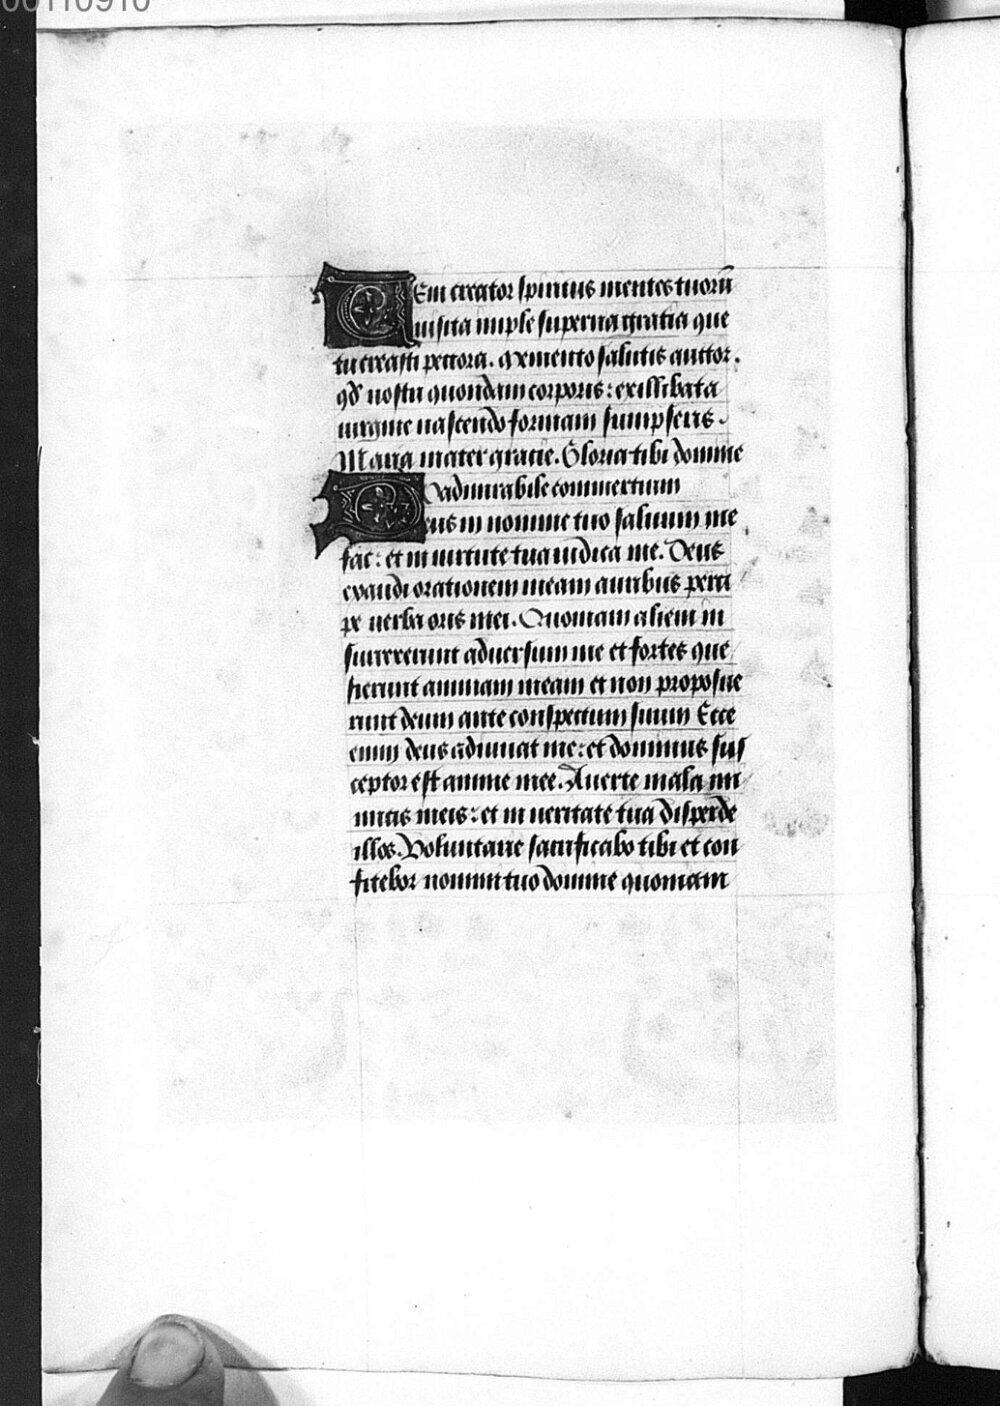 00110910
VEni creator spiritus mentes tuorū
uisita imple superna gratia que
tu creasti pectora. Memento salutis auctor.
qđ nostri quondam corporis: ex illibata
uirgine nascendo formam sumpseris.
Maria mater gracie. Gloria tibi domine
O admirabile commertium
Deus in nomine tuo saluum me
fac: et in uirtute tua iudica me. Deus
exaudi orationem meam auribus perci
pe uerba oris mei. Quoniam alieni in
surrexerunt aduersum me et fortes que
sierunt animam meam et non proposue
runt deum ante conspectum suum Ecce
enim deus adiuuat me: et dominus sus
ceptor est anime mee. Auerte mala ini
micis meis: et in ueritate tua disperde
illos. Voluntarie sacrificabo tibi et con
fitebor nomini tuo domine quoniam